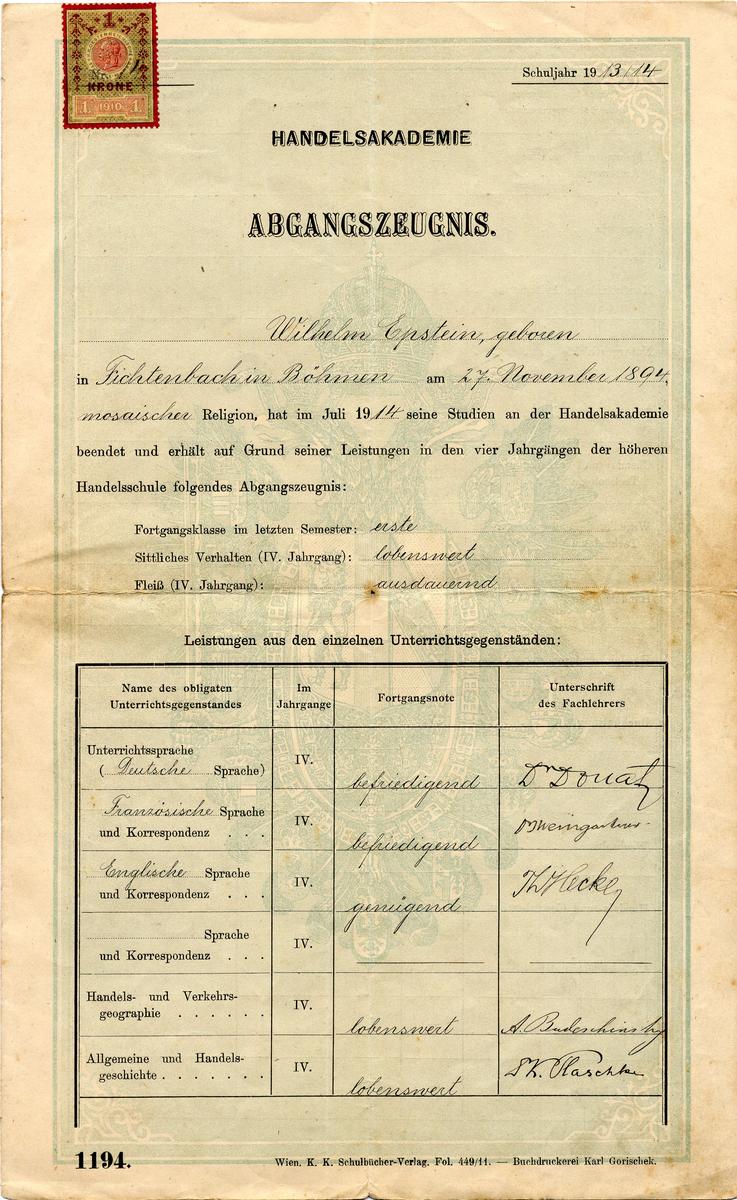 1
KRONE
1 1910 1
Schuljahr 1913/14
HANDELSAKADEMIE
ABGANGSZEUGNIS.
Wilhelm Epstein, geboren
in Fichtenbach in Böhmen am 27. November 1894,
mosaischer Religion, hat im Juli 1914 seine Studien an der Handelsakademie
beendet und erhält auf Grund seiner Leistungen in den vier Jahrgängen der höheren
Handelsschule folgendes Abgangszeugnis:
Fortgangsklasse im letzten Semester: erste
Sittliches Verhalten (IV. Jahrgang): lobenswert
Fleiß (IV. Jahrgang): ausdauernd
Leistungen aus den einzelnen Unterrichtsgegenständen:
Name des obligaten Unterrichtsgegenstandes
Im Jahrgange
Fortgangsnote
Unterschrift des Fachlehrers
Unterrichtssprache
(Deutsche Sprache) IV. befriedigend Dr Donat
Französische Sprache
und Korrespondenz . . . IV. befriedigend
Englische Sprache
und Korrespondenz . . . IV. genügend
Sprache
und Korrespondenz . . . IV.
Handels- und Verkehrs-
geographie . . . . . . IV. lobenswert A. Budeschinsky
Allgemeine und Handels-
geschichte . . . . . . . IV. lobenswert
1194.
Wien. K. K. Schulbücher-Verlag. Fol. 449/11. — Buchdruckerei Karl Gorischek.